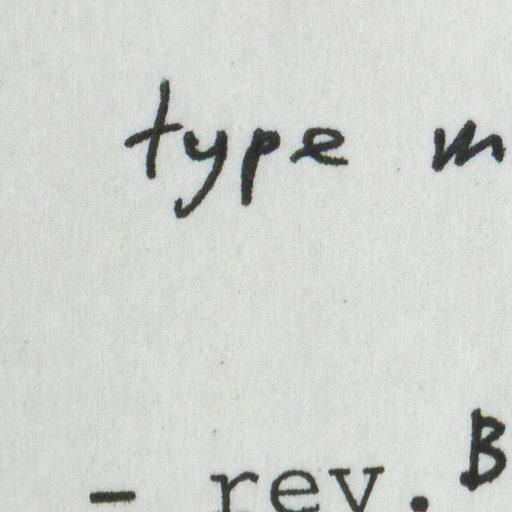 type m
- rev. B